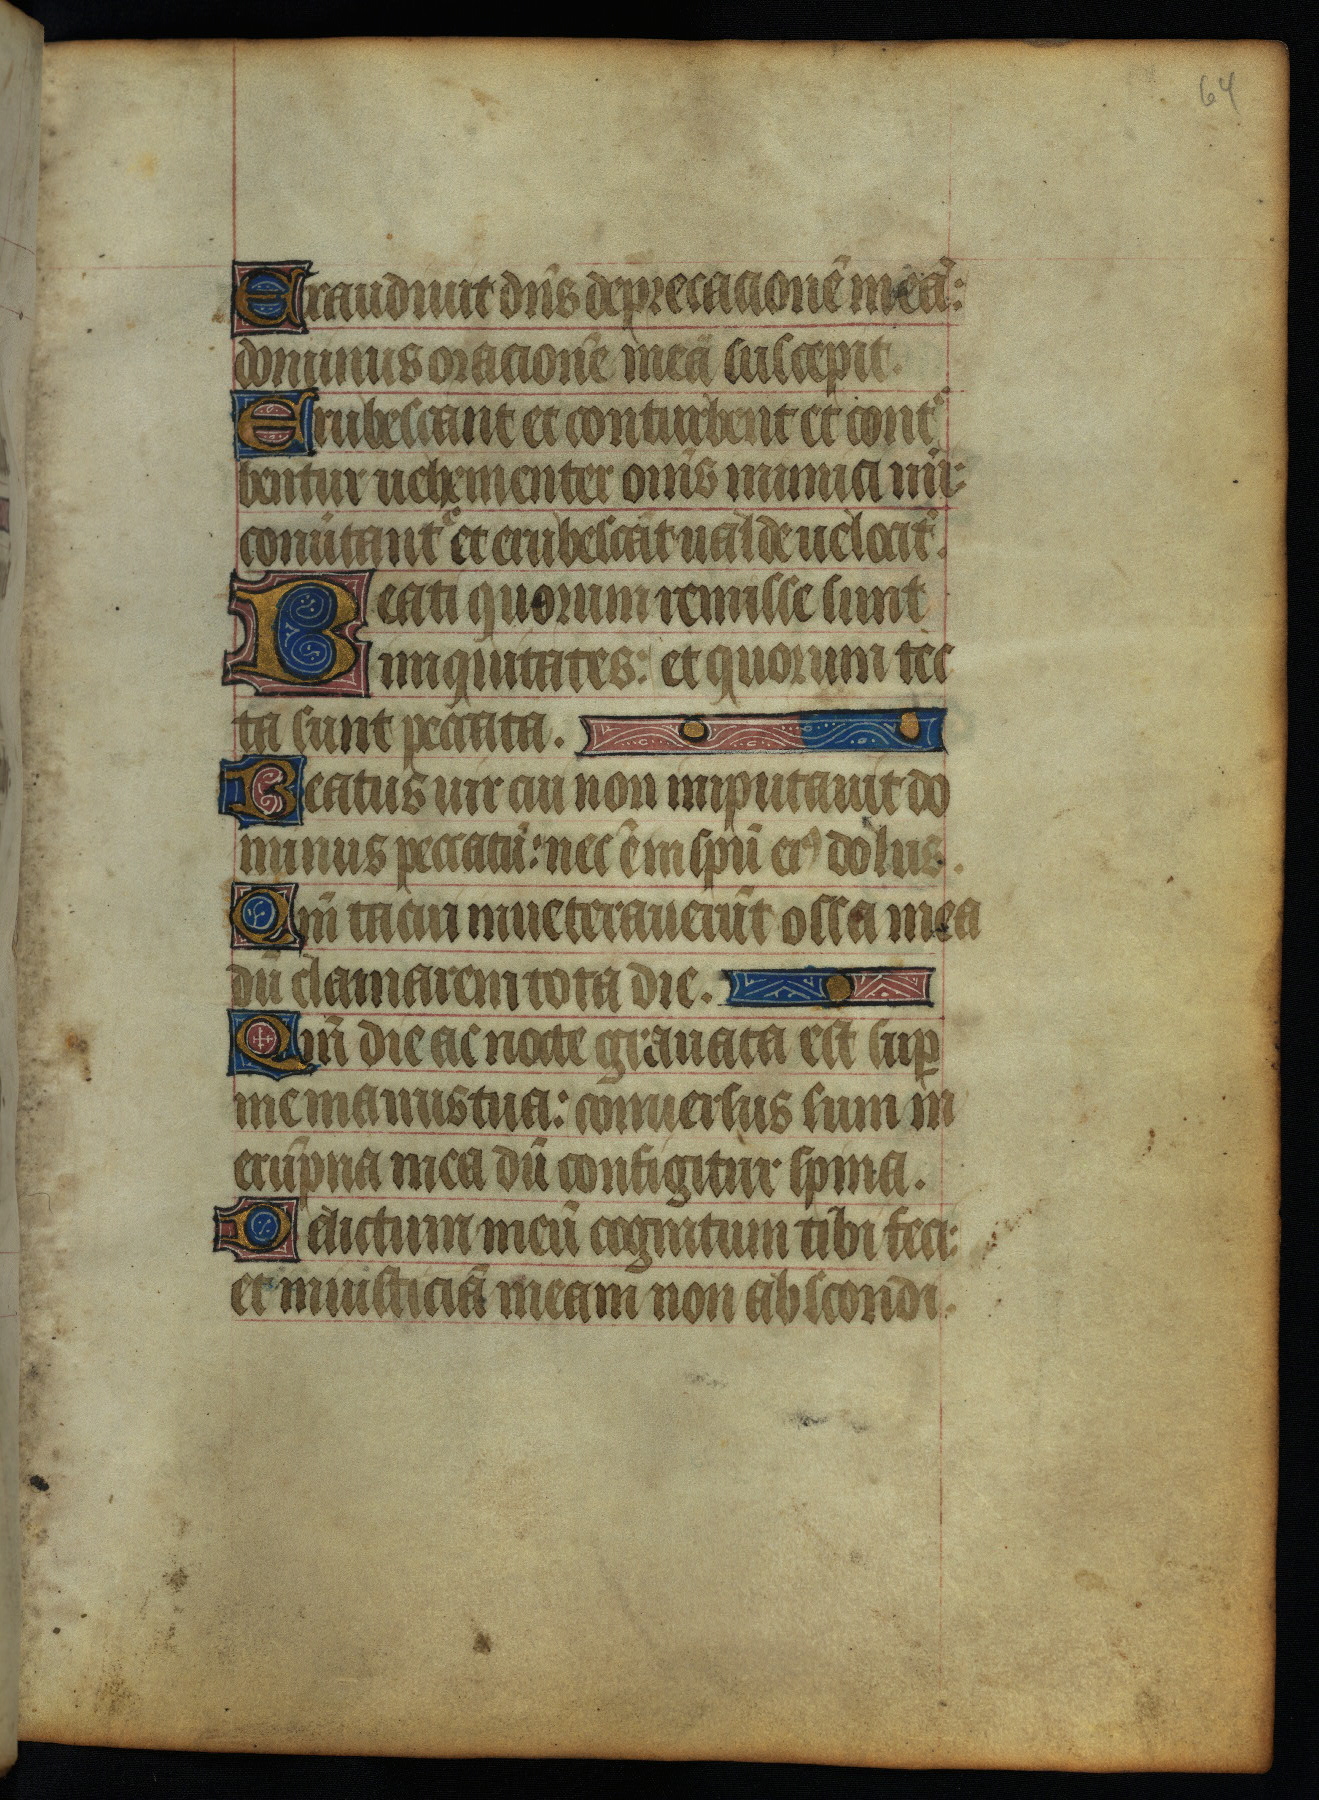 64
Exaudiuit dn̄s deprecacionē meā:
dominus oracionē meā suscepit.
Erubescant et conturbent et contᶜ
bentur uehementer om̄s inimici mī:
conūtantᶜ et erubescāt ualde uelocitᶜ.
Beati quorum remisse sunt
iniquitates: et quorum tec
ta sunt peccata.
Beatus uir cui non imputauit do
minus peccatū: nec ē in spū eiꝰ dolus.
Qm̄ tacui inueterauerūt ossa mea
dū clamarem tota die.
Qm̄ die ac nocte grauata est suꝑ
me manus tua: conuersus sum in
erūpna mea dū configitur spina.
Delictum meū cognitum tibi feci:
et iniusticiā meam non abscondi.